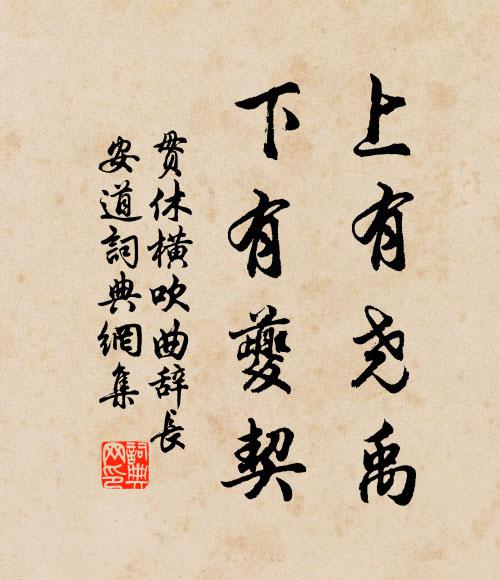 上有尧禹
下有夔契
贯休横吹曲辞长
安道詞典網集
詞典
网印